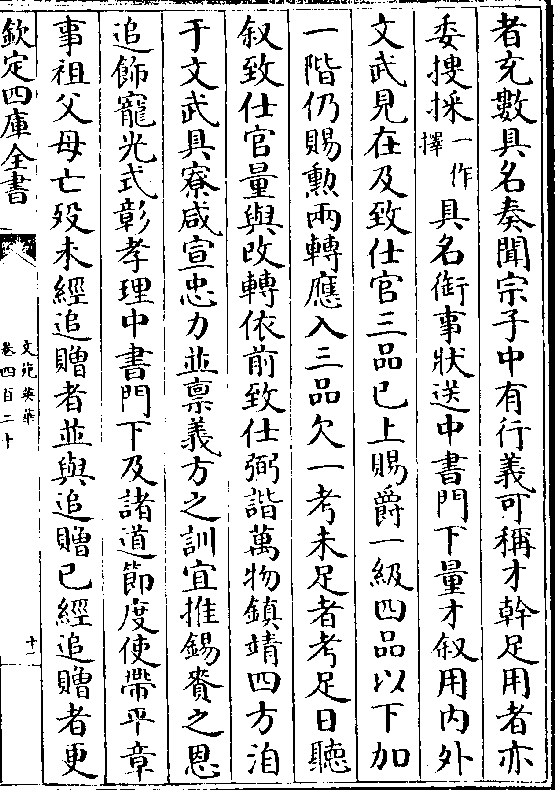 者充數具名奏聞宗子中有行義可稱才幹足用者亦
委搜採一作擇具名銜事狀送中書門下量才叙用內外
文武見在及致仕官三品已上賜爵一級四品以下加
一階仍賜勲兩轉應入三品欠一考未足者考足日聽
叙致仕官量與改轉依前致仕弼諧萬物鎮靖四方洎
于文武具寮咸宣忠力並禀義方之訓宜推錫賚之恩
追飾寵光式彰孝理中書門下及諸道節度使帶平章
事祖父母亡殁未經追贈者並與追贈已經追贈者更
欽定四庫全書
文苑英華
卷四百二十
十一